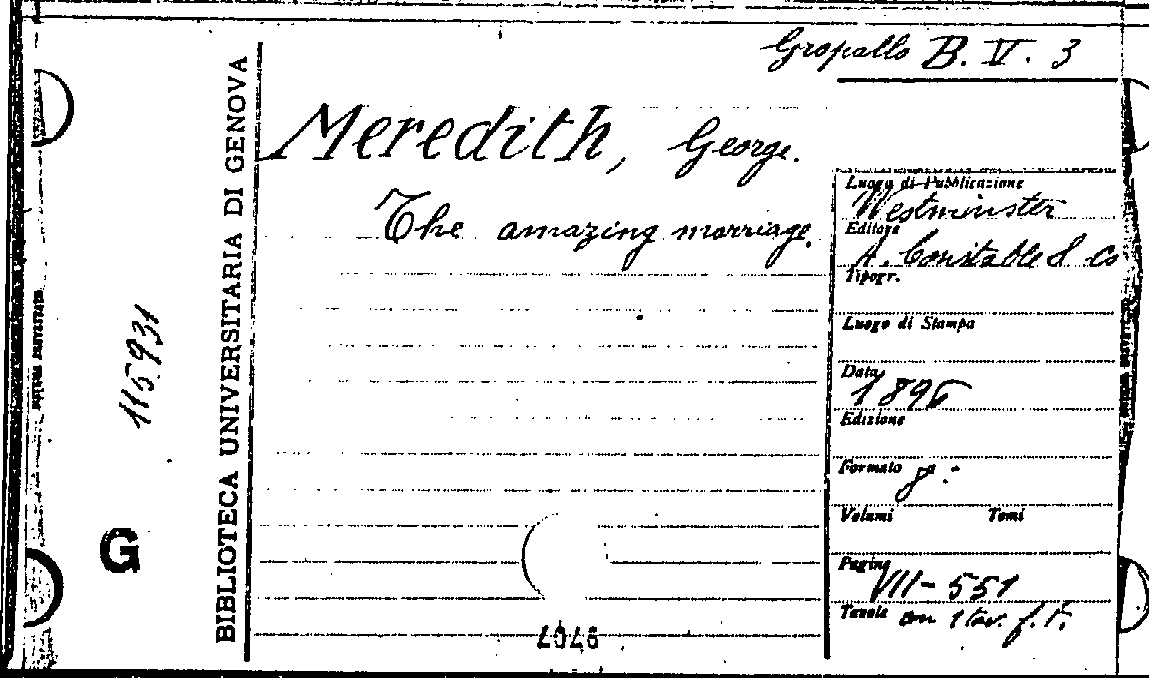 Gropallo B. V. 3
BIBLIOTECA UNIVERSITARIA DI GENOVA
115931
G
Meredith, George.
The amazing marriage.
Luogo di Pubblicazione
Westminster
Editore
A. Constable & Co
Tipogr.
Luogo di Stampa
Data
1896
Edizione
Formato 8°.
Volumi Tomi
Pagine
VII-551
Tavole con 1 tav. f. t.